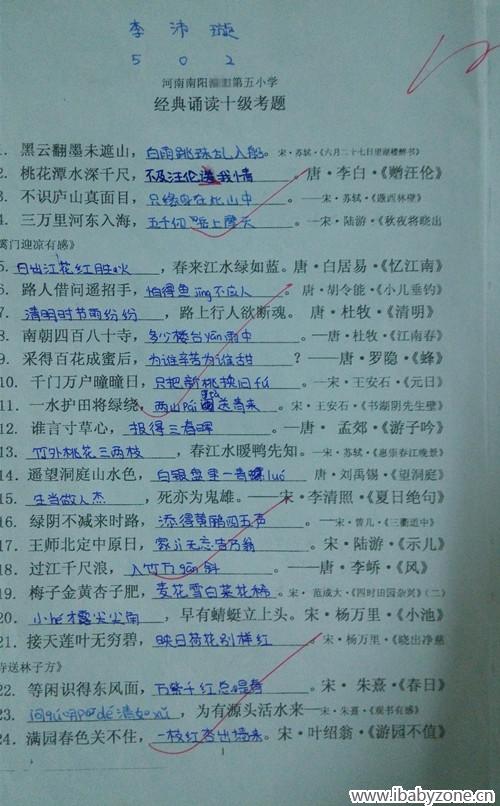 李沛璇
502
河南南阳 第五小学
经典诵读十级考题
1. 黑云翻墨未遮山，白雨跳珠乱入船。宋·苏轼·《六月二十七日望湖楼醉书》
2. 桃花潭水深千尺，不及汪伦送我情 唐·李白·《赠汪伦》
3. 不识庐山真面目，只缘身在此山中 ——宋·苏轼·《题西林壁》
4. 三万里河东入海，五千仞岳上摩天 ——宋·陆游·《秋夜将晓出
篱门迎凉有感》
5. 日出江花红胜火，春来江水绿如蓝。唐·白居易·《忆江南》
6. 路人借问遥招手，怕得鱼jīng不应人。——唐·胡令能·《小儿垂钓》
7. 清明时节雨纷纷，路上行人欲断魂。唐·杜牧·《清明》
8. 南朝四百八十寺，多少楼台yān雨中 ——唐·杜牧·《江南春》
9. 采得百花成蜜后，为谁辛苦为谁甜？——唐·罗隐·《蜂》
10. 千门万户曈曈日，只把新桃换旧fú 。——宋·王安石·《元日》
11. 一水护田将绿绕，两山pái 送青来。宋·王安石·《书湖阴先生壁》
12. 谁言寸草心，报得三春晖。——唐·孟郊·《游子吟》
13. 竹外桃花三两枝，春江水暖鸭先知。——宋·苏轼·《惠崇春江晚景》
14. 遥望洞庭山水色，白银盘里一青螺luó 唐·刘禹锡·《望洞庭》
15. 生当做人杰，死亦为鬼雄。——宋·李清照·《夏日绝句》
16. 绿阴不减来时路，添得黄鹂四五声。——宋·曾几·《三衢道中》
17. 王师北定中原日，家jì无忘告乃翁。宋·陆游·《示儿》
18. 过江千尺浪，入竹万gān斜。——唐·李峤·《风》
19. 梅子金黄杏子肥，麦花雪白菜花稀。宋·范成大·《四时田园杂兴》（二）
20. 小hé才露尖尖角，早有蜻蜓立上头。宋·杨万里·《小池》
21. 接天莲叶无穷碧，映日荷花别样红。宋·杨万里·《晓出净慈
寺送林子方》
22. 等闲识得东风面，万紫千红总是春。宋·朱熹·《春日》
23. 问qú那 dé清如xǔ，为有源头活水来——宋·朱熹·《观书有感》
24. 满园春色关不住，一枝红杏出墙来。宋·叶绍翁·《游园不值》
1
www.ibabyzone.cn